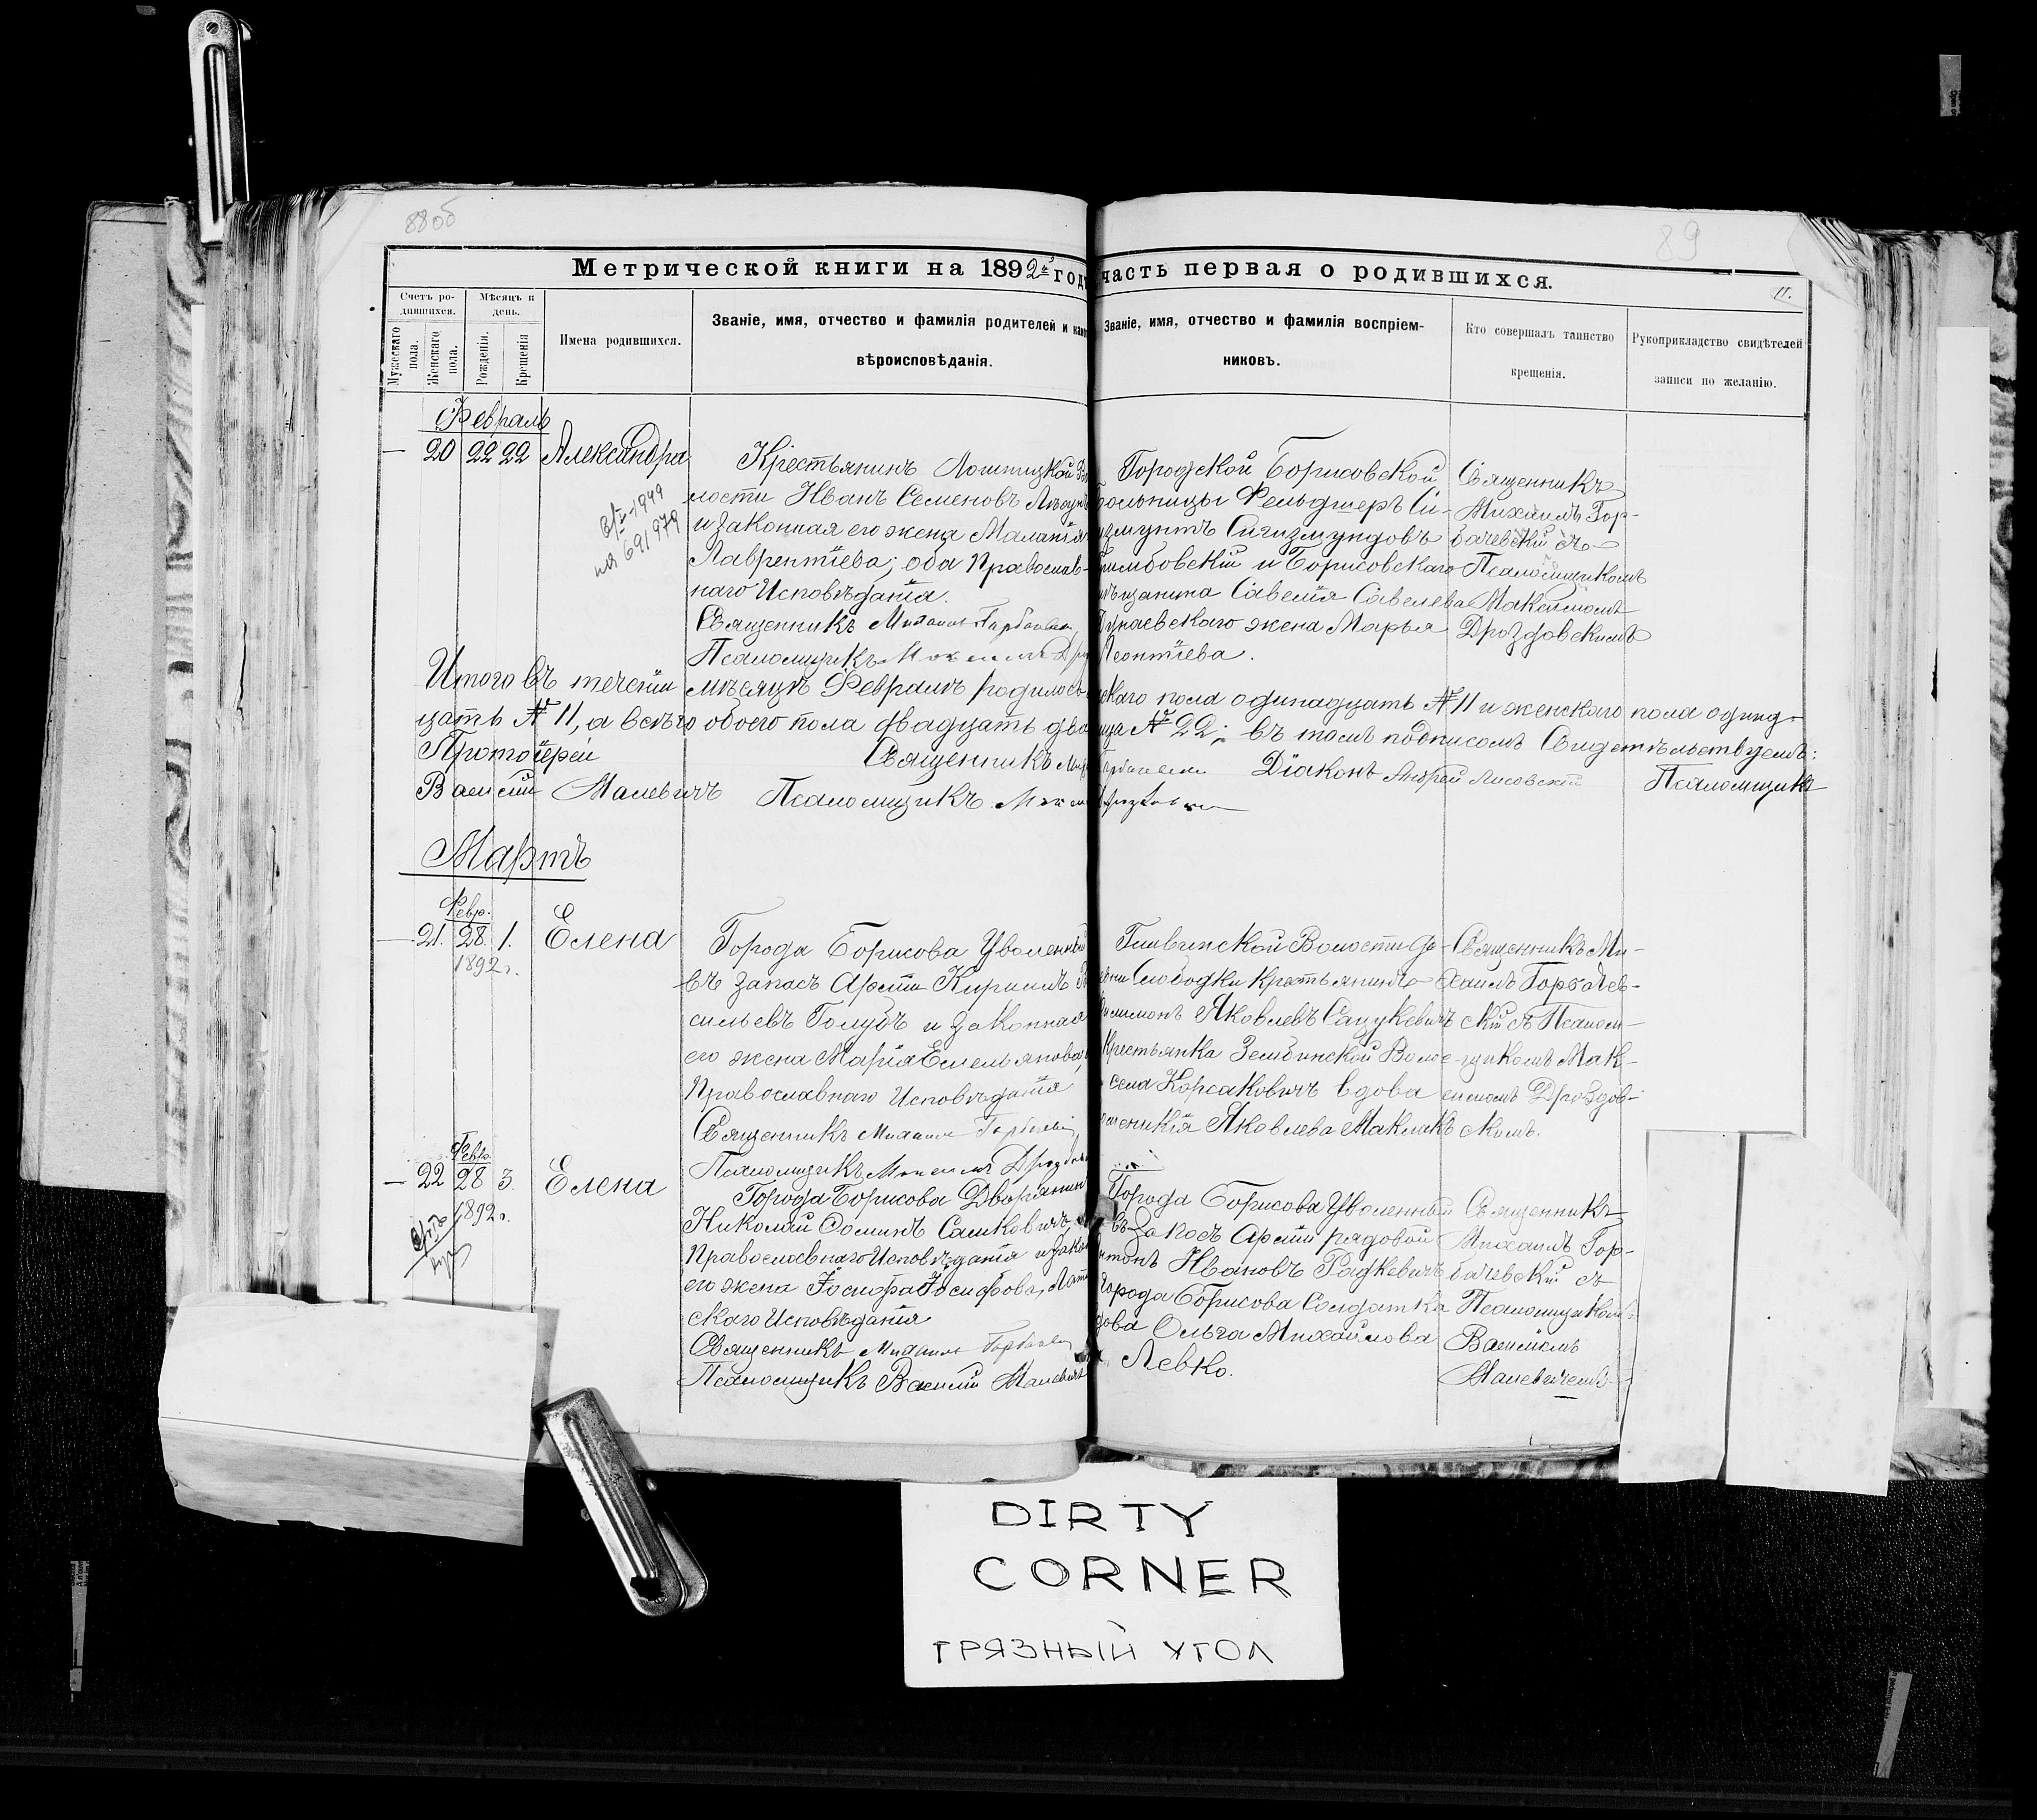 88об
89
Метрической книги на 1892й годъ
часть первая о родившихся.
11.
Счетъ родившихся.
Мѣсяцъ и день.
Мужескаго пола.
Женскаго пола.
Рожденія.
Крещенія
Имена родившихся.
Званіе, имя, отчество и фамилія родителей и
вѣроисповѣданія.
Званіе, имя, отчество и фамилія воспріем-
никовъ.
Кто совершалъ таинство
крещенія.
Рукоприкладство свидѣтелей
записи по желанію.
Февраль
— 20 22 22 Александра
Крестьянинъ Лошницкой Во
лости Иванъ Семеновъ
и законная его жена Маланія
Лаврентіева; оба Православ-
наго Исповѣданія.
Священникъ Михаилъ Горбачевскій
Псаломщикъ Максимъ
Городской Борисовской
больницы Фельдшеръ Си-
гизмунтъ Сигизмундовъ
и Борисовскаго
мѣщанина Савелія Савелева
Дунаевскаго жена Марья
Леонтіева.
Священникъ
Михаилъ Гор-
бачевскій съ
Псаломщикомъ
Максимомъ
Дроздовскимъ
Итого въ теченіи мѣсяцѣ Февралѣ родилось
скаго пола одинадцать № 11 и женскаго пола одинад-
цать № 11, а всего обоего пола двадцать два
№ 22; въ томъ подписомъ Свидетельствуемъ:
Протоіерей
Священникъ
Діаконъ Андрей Лисовскій
Псаломщикъ
Василій Малевичъ
Псаломщикъ Максимъ Дроздовскій
Мартъ
Февр.
— 21. 28. 1. Елена
1892 г.
Города Борисова Уволенный
въ запасъ Арміи Кирилъ Ва
сильевъ Голубъ и законная
его жена Марія Емельянова,
Православнаго Исповѣданія
Священникъ Михаилъ Горбачевскій
Псаломщикъ Максимъ Дроздовскій
Гливинской Волости де-
ревни Слободки крестьянинъ
Филимонъ Яковлевъ Сацукевичъ
Крестьянка Зембинской Волос
села Корсаковичъ вдова
Яковлева Маклакъ
Священникъ Ми-
хаилъ Горбачев-
скій съ Псалом-
щикомъ Мак-
симомъ Дроздов-
скимъ.
Февр.
— 22 28 3. Елена
1892 г.
Города Борисова Дворянинъ
Николай Фоминъ Сашковичъ
Православнаго Исповѣданія и зако
его жена Іосифа Іосифова, Лати
скаго Исповѣданія
Священникъ Михаилъ Горбачевскій
Псаломщикъ Василій Малевичъ
Города Борисова Уволенный
въ запасъ Арміи рядовой
Антонъ Ивановъ Радкевичъ
города Борисова Солдатка
вдова Ольга Михайлова
Левко.
Священникъ
Михаилъ Гор-
бачевскій съ
Псаломщикомъ
Василіемъ
Малевичемъ
DIRTY
CORNER
ГРЯЗНЫЙ УГОЛ